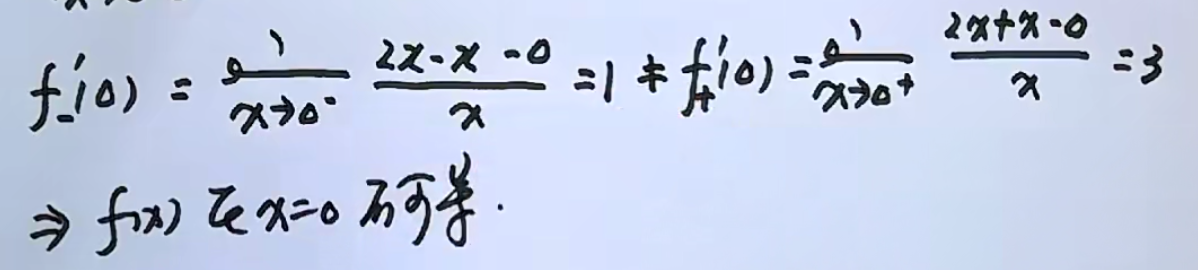 f₋'(0) = lim_{x→0⁻} \frac{2x-x-0}{x} = 1 ≠ f₊'(0) = lim_{x→0⁺} \frac{2x+x-0}{x} = 3
⇒ f(x) 在 x=0 不可导.